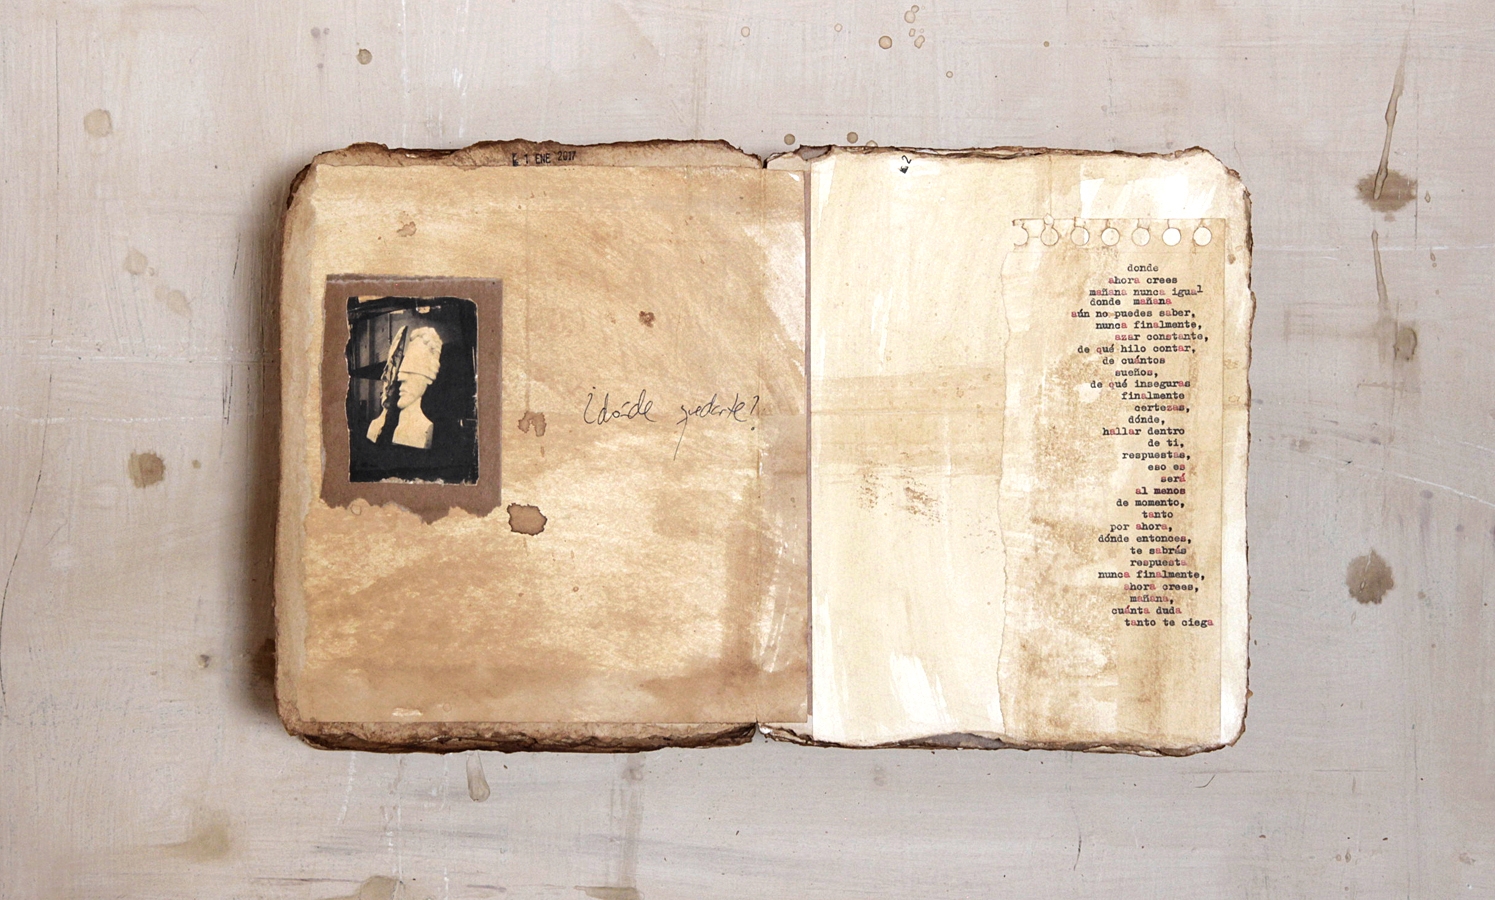 1 ENE 2017
¿dónde quedarte?
2
donde
ahora crees
mañana nunca igual
donde mañana
aún no puedes saber,
nunca finalmente,
azar constante,
de qué hilo contar,
de cuántos
sueños,
de qué inseguras
finalmente
certezas,
dónde,
hallar dentro
de ti,
respuestas,
eso es
será
al menos
de momento,
tanto
por ahora,
dónde entonces,
te sabrás
respuesta
nunca finalmente,
ahora crees,
mañana,
cuánta duda
tanto te ciega